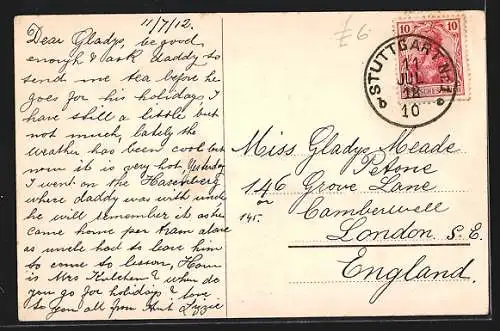 11/7/12.
Dear Gladys, be good
enough & ask daddy to
send me tea before he
goes for his holiday, I
have still a little but
not much, lately the
weather has been cool but
now it is very hot, Yesterday
I went on the Hasenberg
where daddy was with uncle
he will remember it as he
came home per tram alone
as uncle had to leave him
to come to lesson, How
is Mrs Kutchen? & when do
you go for holidays? & love
to you all from Aunt Lizzie
£6
10 10
STUTTGART
11
JUL
12
10
b
Miss Gladys Meade
Petone
146 Grove Lane
or
145.
Camberwell
London S.E.
England.